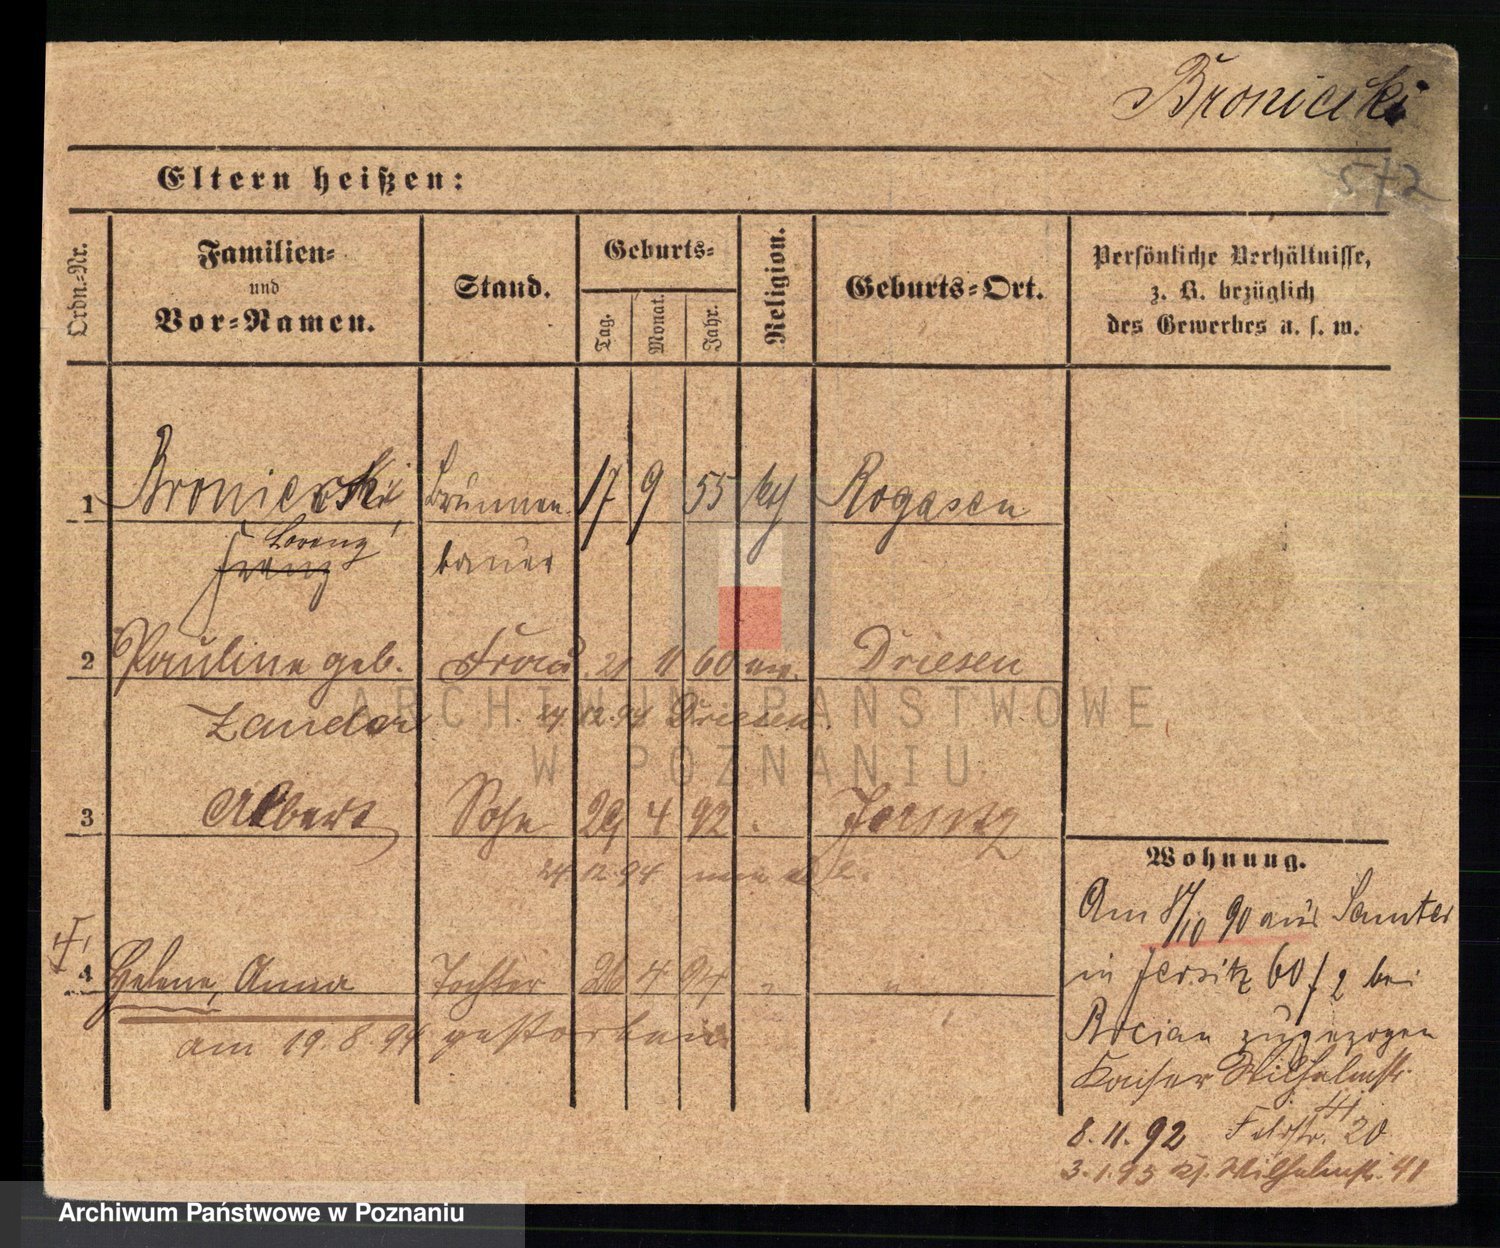 Bronierski
572
Eltern heißen:
Ordn.-Nr.
Familien-
und
Vor-Namen.
Stand.
Geburts-
Tag.
Monat.
Jahr.
Religion.
Geburts-Ort.
Persönliche Verhältnisse,
z. B. bezüglich
des Gewerbes u. s. w.
1 Bronierski, Brunnen 17 9 55 kth Rogasen
Lorenz
Franz bauer
2 Pauline geb. Frau 21 11 60 ev. Driesen
Zander 24.12.94 Driesen
3 Albert Sohn 29 4 92 Jersitz
24.12.94
4 Helene, Anna Tochter 26 4 94 "
am 19.8.94 gestorben
Wohnung.
Am 8/10 90 aus Samter
in Jersitz 60 f 2 bei
Rocian zugezogen
Kaiser Wilhelmstr.
41
8.11.92 Feldstr. 20
3.1.93 K. Wilhelmstr. 41
ARCHIWUM PAŃSTWOWE
W POZNANIU
Archiwum Państwowe w Poznaniu